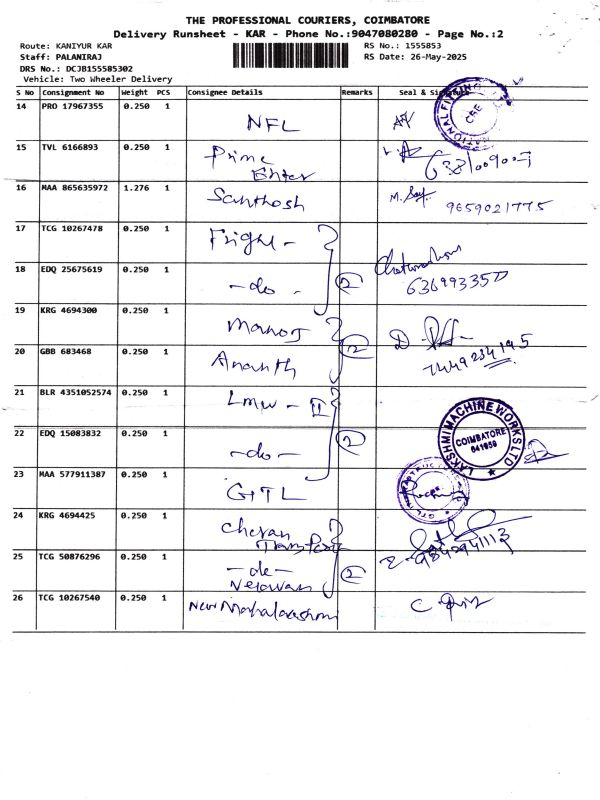 THE PROFESSIONAL COURIERS, COIMBATORE
Delivery Runsheet - KAR - Phone No.:9047080280 - Page No.:2
Route: KANIYUR KAR
RS No.: 1555853
Staff: PALANIRAJ
RS Date: 26-May-2025
DRS No.: DCJB155585302
Vehicle: Two Wheeler Delivery
S No Consignment No Weight PCS Consignee Details Remarks Seal & Signature
14 PRO 17967355 0.250 1 NFL
15 TVL 6166893 0.250 1 Prime
Enter
16 MAA 865635972 1.276 1 Santhosh 9659021775
17 TCG 10267478 0.250 1 Fright -
18 EDQ 25675619 0.250 1 - do - 2
19 KRG 4694300 0.250 1 Manoj
20 GBB 683468 0.250 1 Ananth 2
21 BLR 4351052574 0.250 1 LMW - II
22 EDQ 15083832 0.250 1 - do - 2
LAKSHMI MACHINE WORKS LTD
COIMBATORE
641659
23 MAA 577911387 0.250 1 GITL
24 KRG 4694425 0.250 1 Cheran
Transport
9842941113
25 TCG 50876296 0.250 1 - do - 2
Velavan
26 TCG 10267540 0.250 1 New Mahalakshmi